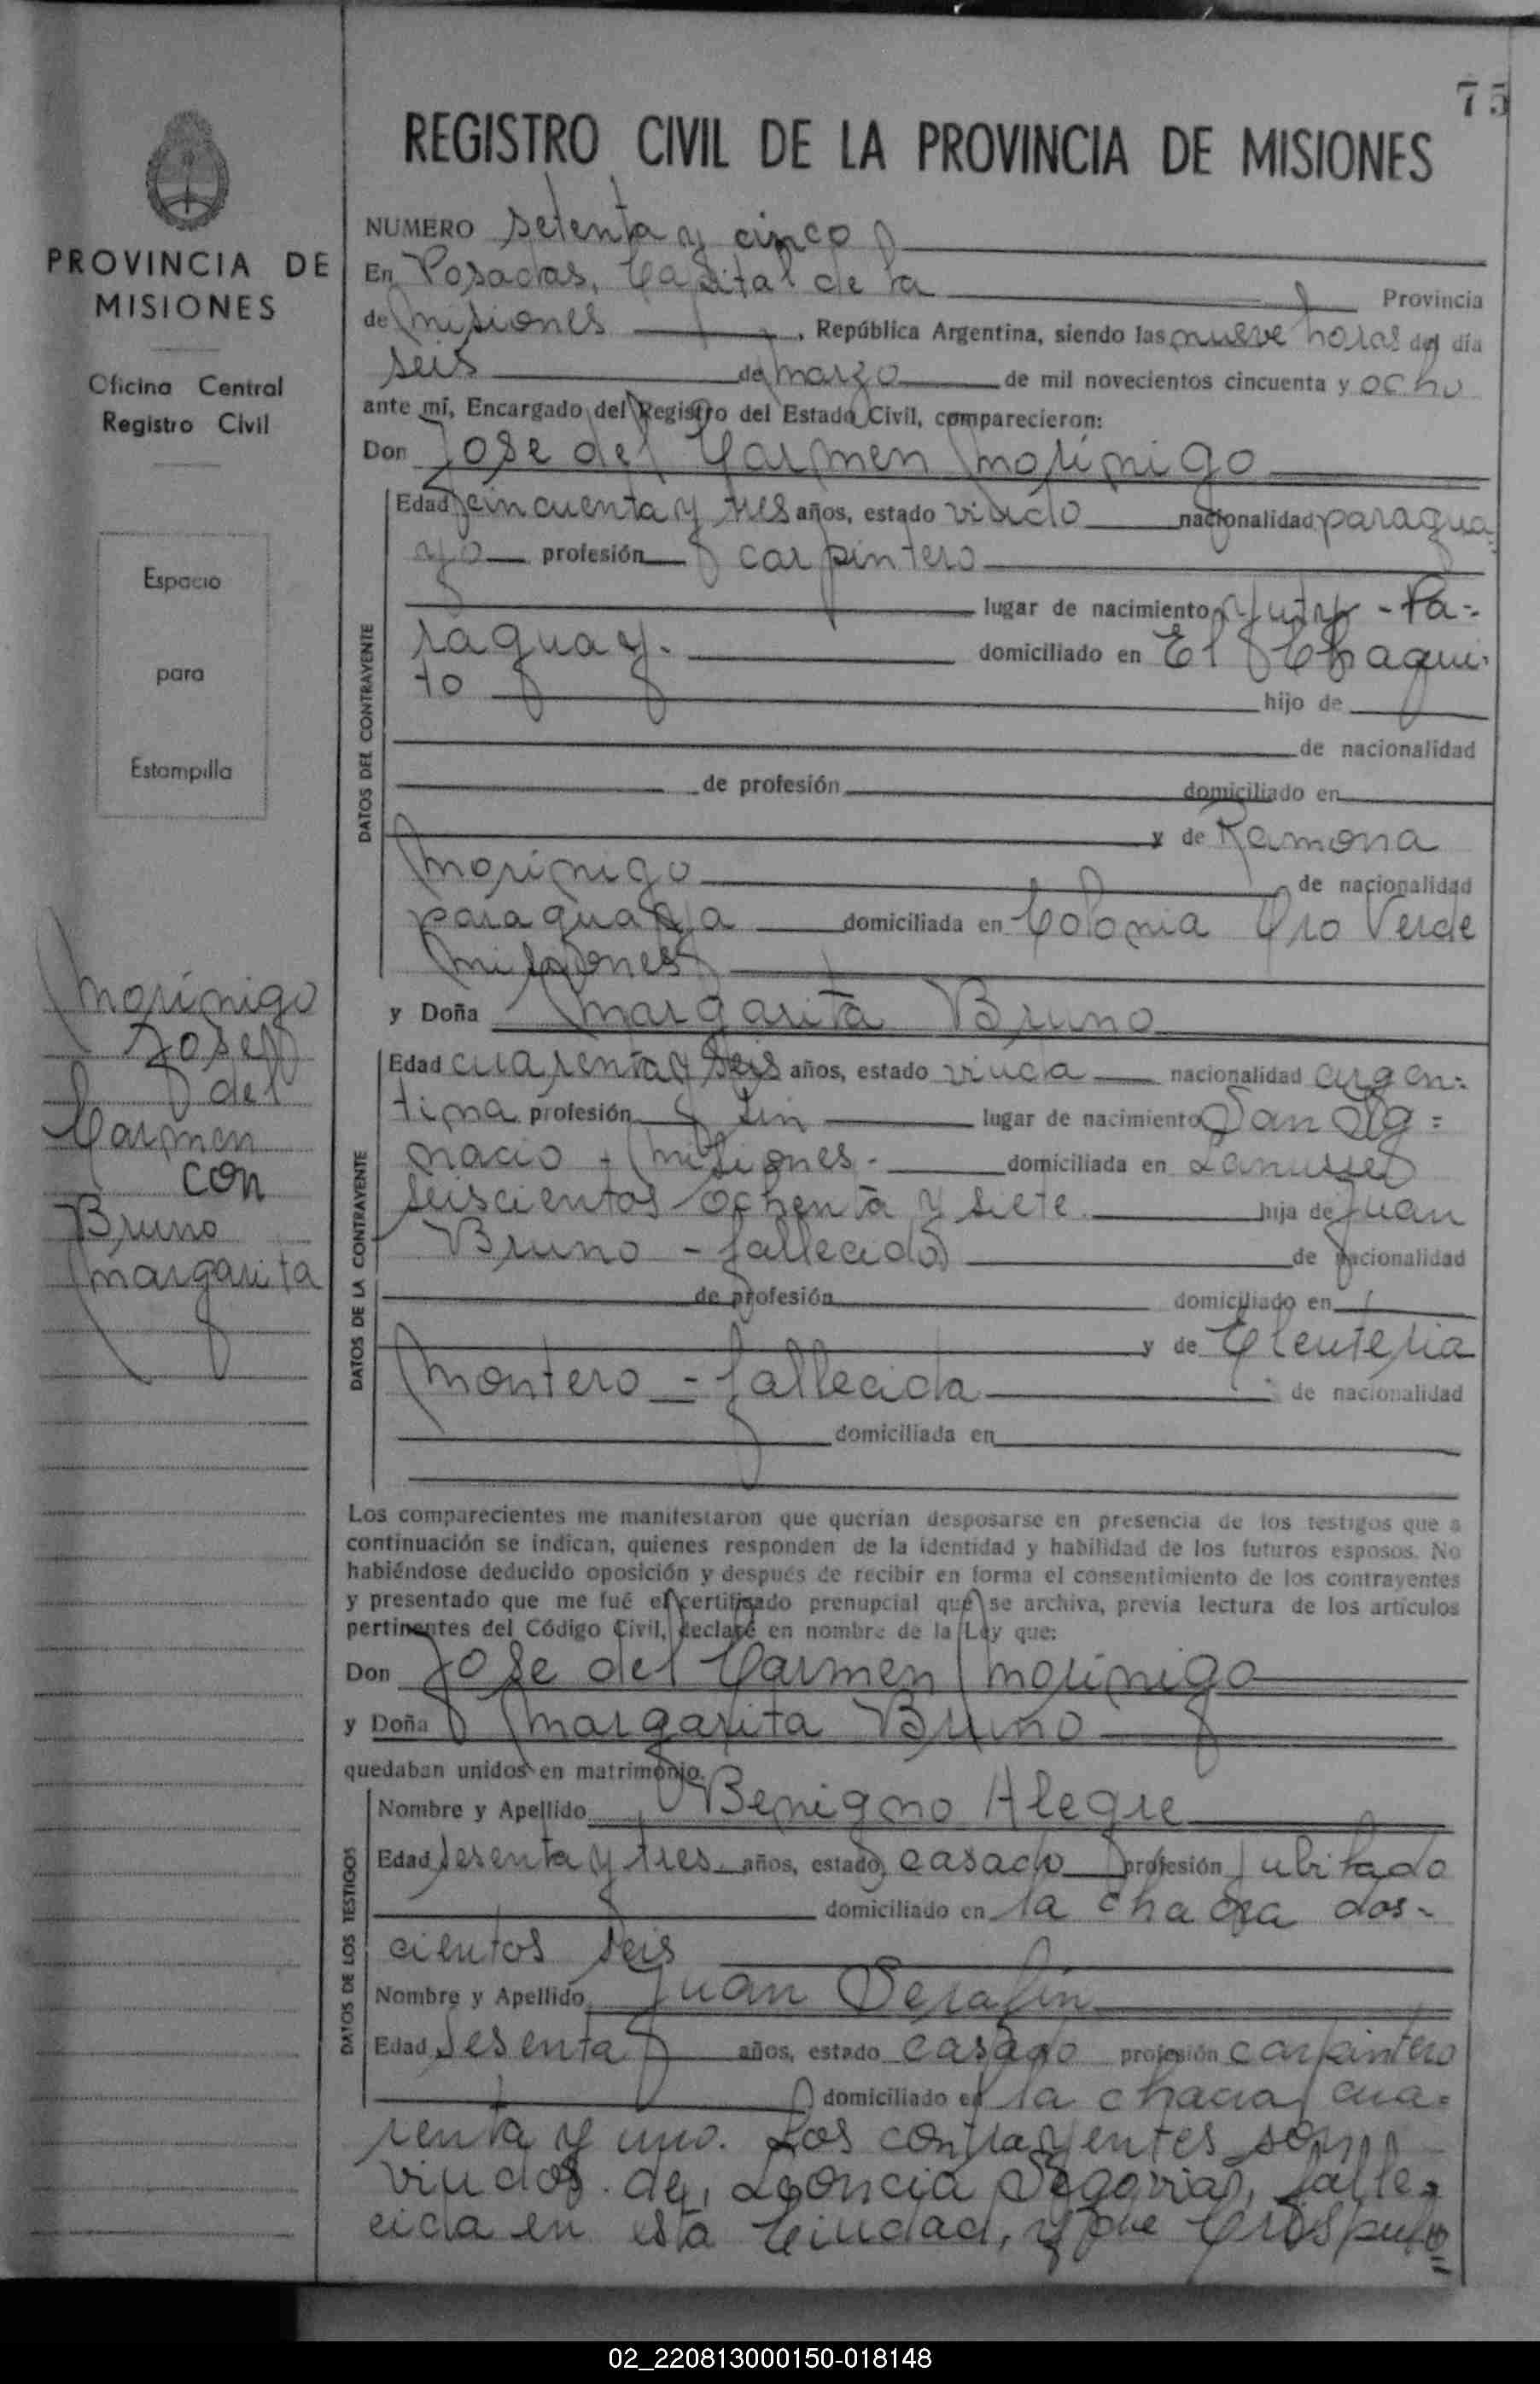 75
REGISTRO CIVIL DE LA PROVINCIA DE MISIONES
PROVINCIA DE
MISIONES
Oficina Central
Registro Civil
Espacio
para
Estampilla
Morínigo
José
del
Carmen
con
Bruno
Margarita
NUMERO setenta y cinco
En Posadas, Capital de la Provincia
de Misiones, República Argentina, siendo las nueve horas del día
seis de marzo de mil novecientos cincuenta y ocho
ante mí, Encargado del Registro del Estado Civil, comparecieron:
Don José del Carmen Morínigo
DATOS DEL CONTRAYENTE
Edad cincuenta y tres años, estado viudo nacionalidad paragua-
yo profesión carpintero
lugar de nacimiento Yuty - Pa-
raguay. domiciliado en El Chaqui-
to hijo de
de nacionalidad
de profesión domiciliado en
y de Ramona
Morínigo de nacionalidad
paraguaya domiciliada en Colonia Oro Verde
Misiones
y Doña Margarita Bruno
DATOS DE LA CONTRAYENTE
Edad cuarenta y seis años, estado viuda nacionalidad argen-
tina profesión sin lugar de nacimiento San Ig-
nacio - Misiones - domiciliada en Lanusse
seiscientos ochenta y siete hija de Juan
Bruno - fallecido de nacionalidad
de profesión domiciliado en
y de Eleuteria
Montero - fallecida de nacionalidad
domiciliada en
Los comparecientes me manifestaron que querían desposarse en presencia de los testigos que a
continuación se indican, quienes responden de la identidad y habilidad de los futuros esposos. No
habiéndose deducido oposición y después de recibir en forma el consentimiento de los contrayentes
y presentado que me fué el certificado prenupcial que se archiva, previa lectura de los artículos
pertinentes del Código Civil, declaré en nombre de la Ley que:
Don José del Carmen Morínigo
y Doña Margarita Bruno
quedaban unidos en matrimonio.
DATOS DE LOS TESTIGOS
Nombre y Apellido Benigno Alegre
Edad sesenta y tres años, estado casado profesión jubilado
domiciliado en la chacra dos-
cientos seis
Nombre y Apellido Juan Serafín
Edad sesenta años, estado casado profesión carpintero
domiciliado en la chacra cua-
renta y uno. Los contrayentes son
viudos de, Leoncia Segovia, falle-
cida en esta Ciudad, y de Críspulo
02_220813000150-018148